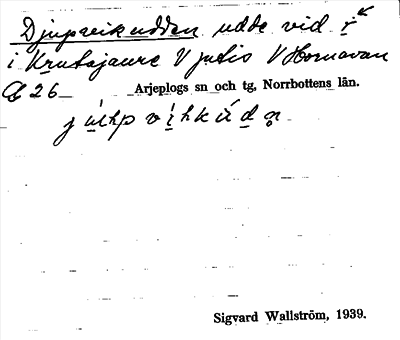 Djupvikudden udde vid
i Krutajaure V jutis V Hornavan
26 Arjeplogs sn och tg, Norrbottens län.
Sigvard Wallström, 1939.